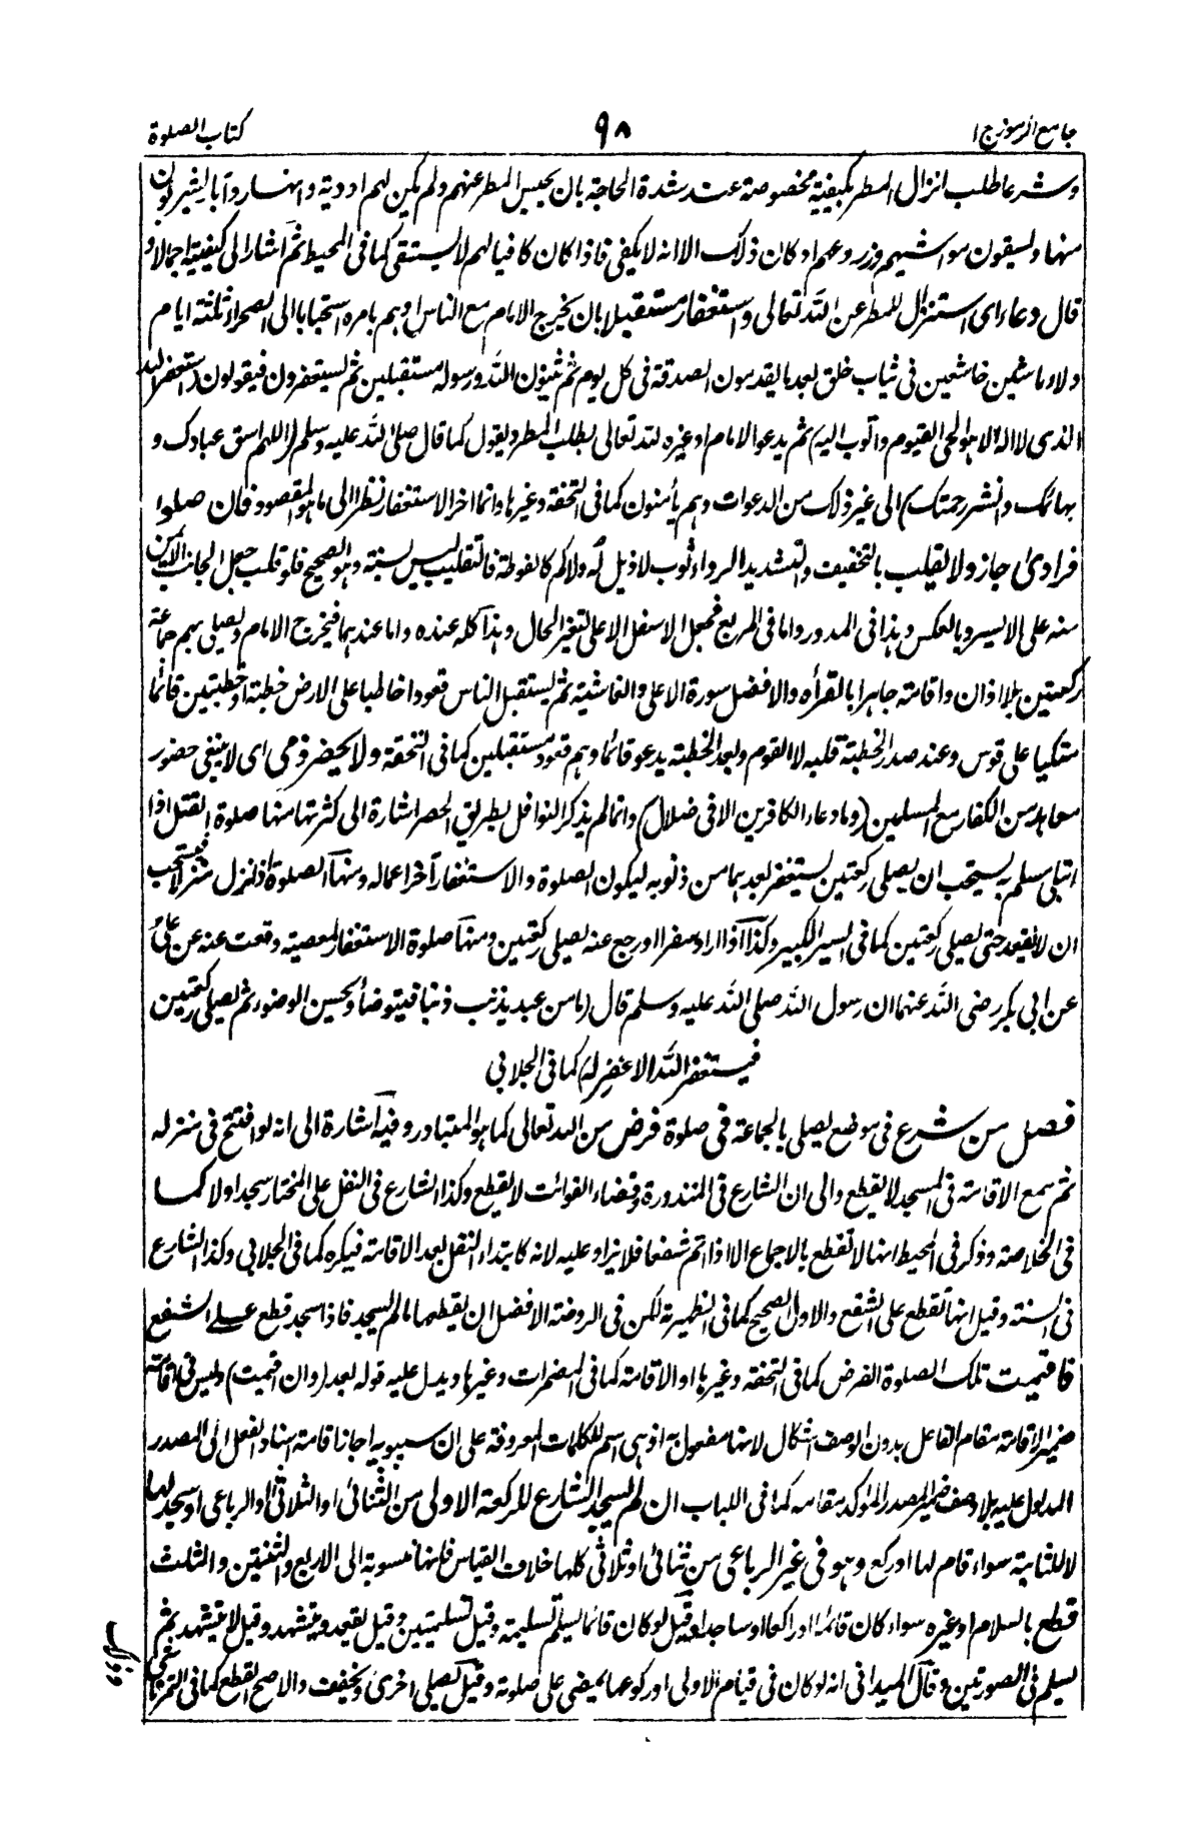 جامع الرموز ج ١
٩٨
كتاب الصلوة
وشرعا طلب انزال المطر بكيفية مخصوصة عند شدة الحاجة بان يحبس المطر عنهم ولم يكن لهم اودية وانهار وآبار يشربون
منها ويسقون مواشيهم وزروعهم او كان ذلك الا انه لا يكفى فاذا كان كافيا لهم لا يستسقى كما فى المحيط ثم اشار الى كيفيته اجمالا و
قال دعاء اى استنزال للمطر عن الله تعالى واستغفار مستقبلا بان يخرج الامام مع الناس او هم بامره استحبابا الى الصحراء ثلثة ايام
ولاء ماشين خاشعين فى ثياب خلق بعد ما يقدمون الصدقة فى كل يوم ثم يثنون الله ورسوله مستقبلين ثم يستغفرون فيقولون (استغفر الله
الذى لا اله الا هو الحى القيوم واتوب اليه) ثم يدعو الامام او غيره لله تعالى بطلب المطر ويقول كما قال صلى الله عليه وسلم (اللهم اسق عبادك و
بهائمك وانشر رحمتك) الى غير ذلك من الدعوات وهم يأمنون كما فى التحفة وغيرها وانما اخر الاستغفار نظرا الى ما هو المقصود فان صلوا
فرادى جاز ولا تقلب بالتخفيف والتشديد الرداء ثوب لا ذيل له ولا كم كالفوطة فالتقليب ليس بسنة وهو الصحيح فلو قلب جعل الجانب الايمن
منه على الايسر وبالعكس وهذا فى المدور واما فى المربع فجعل الاسفل الاعلى لتغير الحال وهذا كله عنده واما عندهما فيخرج الامام ويصلى بهم جماعة
ركعتين بلا اذان واقامة جاهرا بالقرأه والافضل سورة الاعلى والغاشية ثم يستقبل الناس قعودا خاطبا على الارض خطبة او خطبتين قائما
متكيا على قوس وعند صدر الخطبة قلبه لا القوم وبعد الخطبة يدعو قائما وهم قعود مستقبلين كما فى التحفة ولا يحضر ذمى اى لا ينبغى حضور
معاهد من الكفار مع المسلمين (وما دعاء الكافرين الا فى ضلال) وانما لم يذكر النوافل بطريق الحصر اشارة الى كثرتها منها صلوة القتل اذا
ابتلى مسلم به يستحب ان يصلى ركعتين يستغفر بعدهما من ذنوبه ليكون الصلوة والاستغفار آخر اعماله ومنها الصلوة اذا نزل منزلا فيستحب
ان لا يقعد حتى يصلى ركعتين كما فى السير الكبير وكذا اذا اراد سفرا او رجع عنه يصلى ركعتين ومنها صلوة الاستغفار لمعصية وقعت عنه عن على
عن ابى بكر رضى الله عنهما ان رسول الله صلى الله عليه وسلم قال (ما من عبد يذنب ذنبا فيتوضأ ويحسن الوضوء ثم يصلى ركعتين
فيستغفر الله الا غفر له) كما فى الجلابى
فصل من شرع فى موضع يصلى بالجماعة فى صلوة فرض من الله تعالى كما هو المتبادر وفيه اشارة الى انه لو افتتح فى منزله
ثم سمع الاقامة فى المسجد لا يقطع والى ان الشارع فى المنذورة وقضاء الفوائت لا يقطع وكذا الشارع فى النفل على المختار سجد اولا كما
فى الخلاصة وذكر فى المحيط انها لا تقطع بالاجماع الا اذا اتم شفعا فلا يزاد عليه لانه كابتداء النفل بعد الاقامة فيكره كما فى الجلابى وكذا الشارع
فى السنة وقيل انها تقطع على الشفع والاول الصحيح كما فى الظهيرية لكن فى الروضة الافضل ان يقطعها ما لم يسجد فاذا سجد قطع على الشفع
فاقيمت تلك الصلوة الفرض كما فى التحفة وغيرها او الاقامة كما فى المضمرات وغيرها ويدل عليه قوله بعد (وان اقيمت) وليس فى اقامة
ضمير الاقامة مقام الفاعل بدون الوصف اشكال لانها مفعول به اذ هى اسم للكلمات المعروفة على ان سيبويه اجاز اقامة اسناد الفعل الى المصدر
المدلول عليه بلا وصف ضمير المصدر المؤكد مقامه كما فى اللباب ان لم يسجد الشارع للركعة الاولى من الثنائى او الثلاثى او الرباعى او سجد لها
لا للثانية سواء قام لها او ركع وهو فى غير الرباعى من ثنائى او ثلاثى كلها خلاف القياس فانها منسوبة الى الاربع والثنتين والثلث
قطع بالسلام او غيره سواء كان قائما او راكعا او ساجدا وقيل لو كان قائما يسلم تسليمة وقيل تسليمتين وقيل يقعد ويتشهد وقيل لا يتشهد ثم
يسلم فى الصورتين وقال الميدانى انه لو كان فى قيام الاولى او ركوعها يمضى على صلوته وقيل يصلى اخرى ويخفف والاصح القطع كما فى التمرتاشى
وذلك